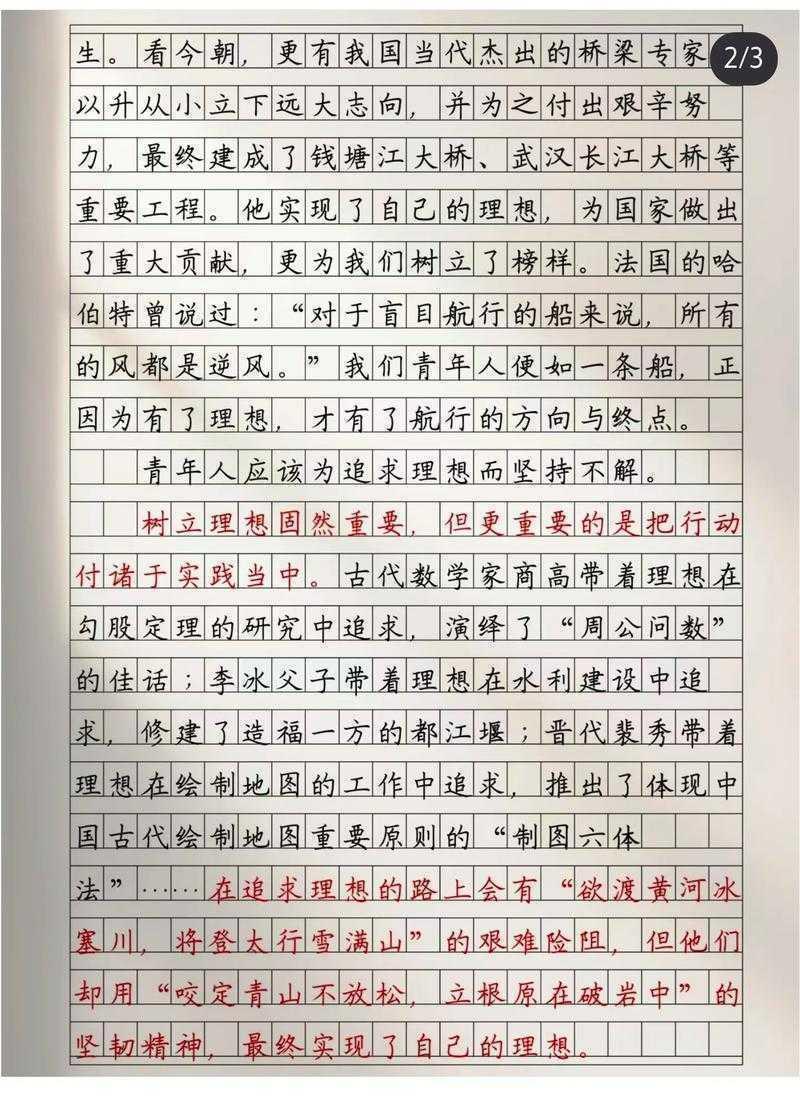 生。看今朝，更有我国当代杰出的桥梁专家
2/3
以升从小立下远大志向，并为之付出艰辛努
力，最终建成了钱塘江大桥、武汉长江大桥等
重要工程。他实现了自己的理想，为国家做出
了重大贡献，更为我们树立了榜样。法国的哈
伯特曾说过：“对于盲目航行的船来说，所有
的风都是逆风。”我们青年人便如一条船，正
因为有了理想，才有了航行的方向与终点。
青年人应该为追求理想而坚持不解。
树立理想固然重要，但更重要的是把行动
付诸于实践当中。古代数学家商高带着理想在
勾股定理的研究中追求，演绎了“周公问数”
的佳话；李冰父子带着理想在水利建设中追
求，修建了造福一方的都江堰；晋代裴秀带着
理想在绘制地图的工作中追求，推出了体现中
国古代绘制地图重要原则的“制图六体
法”……在追求理想的路上会有“欲渡黄河冰
塞川，将登太行雪满山”的艰难险阻，但他们
却用“咬定青山不放松，立根原在破岩中”的
坚韧精神，最终实现了自己的理想。